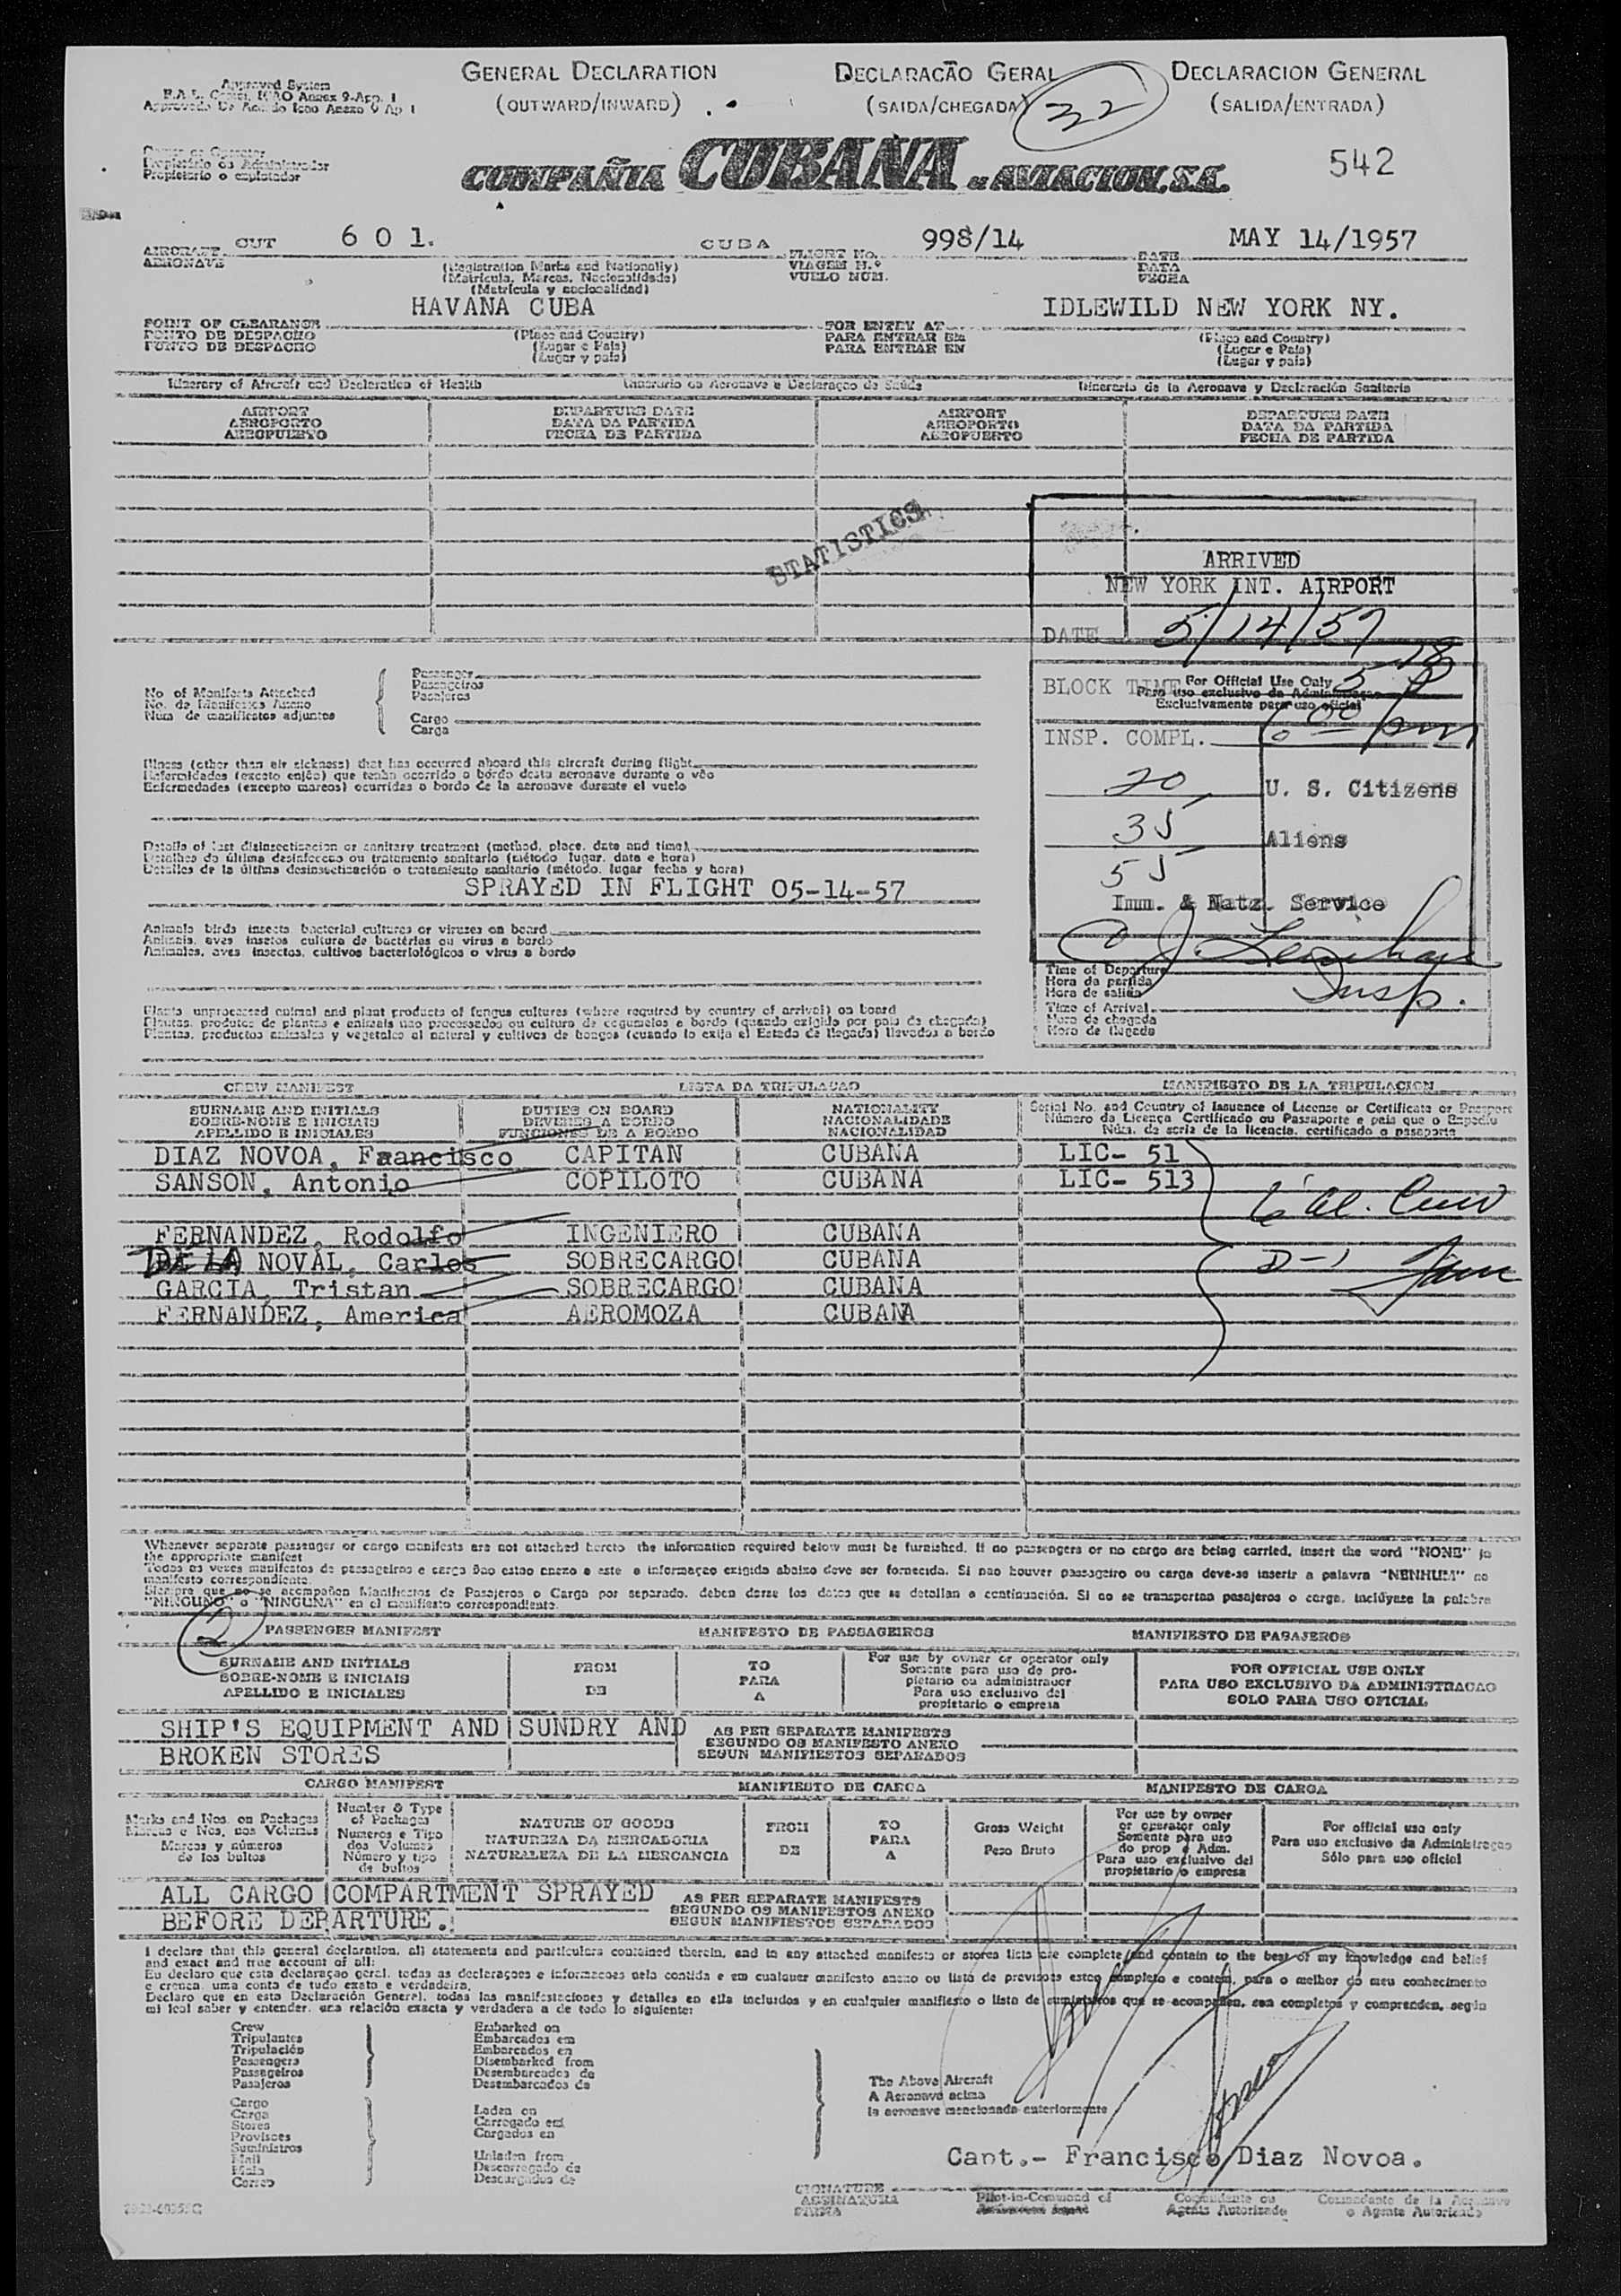 Approved System
GENERAL DECLARATION DECLARACÃO GERAL DECLARACION GENERAL
(OUTWARD/INWARD) (SAIDA/CHEGADA) (SALIDA/ENTRADA)
32
Propietário ou Administrador
Propietario o explotador
COMPAÑIA CUBANA de AVIACION, S.A.
542
AIRCRAFT CUT 601. CUBA FLIGHT No. 998/14 DATE MAY 14/1957
AERONAVE VIAGEM N.º DATA
VUELO NUM. FECHA
(Registration Marks and Nationality)
(Matricula, Marcas, Nacionalidade)
(Matricula y nacionalidad)
HAVANA CUBA IDLEWILD NEW YORK NY.
POINT OF CLEARANCE FOR ENTRY AT
PONTO DE DESPACHO (Place and Country) PARA ENTRAR EM (Place and Country)
PUNTO DE DESPACHO (Lugar e Pais) PARA ENTRAR EN (Lugar e Pais)
(Lugar y pais) (Lugar y pais)
Itinerary of Aircraft and Declaration of Health Itinerario da Aeronave e Declaraçao de Saúde Itinerario de la Aeronave y Declaración Sanitaria
AIRPORT DEPARTURE DATE AIRPORT DEPARTURE DATE
AEROPORTO DATA DA PARTIDA AEROPORTO DATA DA PARTIDA
AEROPUERTO FECHA DE PARTIDA AEROPUERTO FECHA DE PARTIDA
STATISTICS
ARRIVED
NEW YORK INT. AIRPORT
DATE 5/14/57
BLOCK TIME
For Official Use Only
Para uso exclusivo da Administraçao
Exclusivamente para uso oficial
INSP. COMPL. 6 00 pm
20 U. S. Citizens
35 Aliens
55
Imm. & Natz. Service
Insp.
Time of Departure
Hora da partida
Hora de salida
Time of Arrival
Hora de chegada
Hora de llegada
No of Manifests Attached
No. de Manifestos Anexo
Num de manifiestos adjuntos
Passenger
Passageiros
Pasajeros
Cargo
Carga
Illness (other than air sickness) that has occurred aboard this aircraft during flight
Enfermidades (exceto enjôo) que tenha ocorrido o bórdo desta aeronave durante o vôo
Enfermedades (excepto mareos) ocurridas a bordo de la aeronave durante el vuelo
Details of last disinsectisacion or sanitary treatment (method, place, date and time)
Detalhes da última desinfeccao ou tratamento sanitario (método lugar, data e hora)
Detalles de la última desinsectización o tratamiento sanitario (método, lugar fecha y hora)
SPRAYED IN FLIGHT 05-14-57
Animals birds insects, bacterial cultures or viruses on board
Animais, aves insetos cultura de bactérias ou virus a bordo
Animales, aves insectos, cultivos bacteriológicos o virus a bordo
Plants unprocessed animal and plant products of fungus cultures (where required by country of arrival) on board
Plantas, produtos de plantas e animais nao processados ou cultura de cogumelos a bordo (quando exigido por pais de chegada)
Plantas, productos animales y vegetales al natural y cultivos de hongos (cuando lo exija el Estado de llegada) llevados a bordo
CREW MANIFEST LISTA DA TRIPULACAO MANIFIESTO DE LA TRIPULACION
SURNAME AND INITIALS DUTIES ON BOARD NATIONALITY Serial No. and Country of Issuance of License or Certificate or Passport
SOBRE-NOME E INICIAIS DEVERES A BORDO NACIONALIDADE Número da Licença Certificado ou Passaporte e pais que o Expediu
APELLIDO E INICIALES FUNCIONES DE A BORDO NACIONALIDAD Núm. de serie de la licencia, certificado o pasaporte
DIAZ NOVOA, Fraancisco CAPITAN CUBANA LIC- 51
SANSON, Antonio COPILOTO CUBANA LIC- 513
FERNANDEZ, Rodolfo INGENIERO CUBANA
DE LA NOVAL, Carlos SOBRECARGO CUBANA
GARCIA, Tristan SOBRECARGO CUBANA
FERNANDEZ, America AEROMOZA CUBANA
D-1
Whenever separate passenger or cargo manifests are not attached hereto the information required below must be furnished. If no passengers or no cargo are being carried, insert the word "NONE" in
the appropriate manifest
Todas as vezes manifestos de passageiros e carga nao estao anexo a este a informaçao exigida abaixo deve ser fornecida. Si nao houver passageiro ou carga deve-se inserir a palavra "NENHUM" no
manifesto correspondiente.
Siempre que no se acompañen Manifiestos de Pasajeros o Carga por separado, deben darse los datos que se detallan a continuación. Si no se transportan pasajeros o carga, inclúyase la palabra
"NINGUNO" o "NINGUNA" en el manifiesto correspondiente.
2
PASSENGER MANIFEST MANIFESTO DE PASSAGEIROS MANIFIESTO DE PASAJEROS
SURNAME AND INITIALS FROM TO For use by owner or operator only FOR OFFICIAL USE ONLY
SOBRE-NOME E INICIAIS DE PARA Somente para uso de pro- PARA USO EXCLUSIVO DA ADMINISTRACAO
APELLIDO E INICIALES A pietario ou administrador SOLO PARA USO OFICIAL
Para uso exclusivo del
propietario o empresa
SHIP'S EQUIPMENT AND SUNDRY AND AS PER SEPARATE MANIFESTS
BROKEN STORES SEGUNDO OS MANIFESTO ANEXO
SEGUN MANIFIESTOS SEPARADOS
CARGO MANIFEST MANIFIESTO DE CARGA MANIFESTO DE CARGA
Marks and Nos. on Packages Number & Type of Packages NATURE OF GOODS FROM TO Gross Weight For use by owner or operator only For official use only
Marcas e Nos. nos Volumes Numeros e Tipo dos Volumes NATUREZA DA MERCADORIA DE PARA Peso Bruto Somente para uso do prop e Adm. Para uso exclusivo da Administraçao
Marcas y números de los bultos Número y tipo de bultos NATURALEZA DE LA MERCANCIA A Para uso exclusivo del propietario o empresa Sólo para uso oficial
ALL CARGO COMPARTMENT SPRAYED AS PER SEPARATE MANIFESTS
BEFORE DEPARTURE. SEGUNDO OS MANIFESTOS ANEXO
SEGUN MANIFIESTOS SEPARADOS
I declare that this general declaration, all statements and particulars contained therein, and in any attached manifests or stores lists are complete and contain to the best of my knowledge and belief
and exact and true account of all:
Eu declaro que esta declaraçao geral, todas as declaraçoes e informacoes nela contida e em cualquer manifesto anexo ou lista de previsoes estao completo e contem, para o melhor do meu conhecimento
e crenca, uma conta de tudo exata e verdadeira.
Declaro que en esta Declaración General, todas las manifestaciones y detalles en ella incluidos y en cualquier manifiesto o lista de suministros que se acompañen, son completos y comprenden, según
mi leal saber y entender, una relación exacta y verdadera a de todo lo siguiente:
Crew Embarked on
Tripulantes Embarcados em
Tripulación Embarcados en
Passengers Disembarked from
Passageiros Desembarcados de
Pasajeros Desembarcados de
Cargo
Carga Laden on
Stores Carregado em
Provisoes Cargados en
Suministros
Mail Unladen from
Mala Descarregado de
Correo Descargados de
The Above Aircraft
A Aeronave acima
la aeronave mencionada anteriormente
Capt.- Francisco Diaz Novoa.
SIGNATURE
ASSINATURA Pilot-in-Command of Comandante ou Comandante de la Aeronave
FIRMA Agente Autorizado o Agente Autorizado